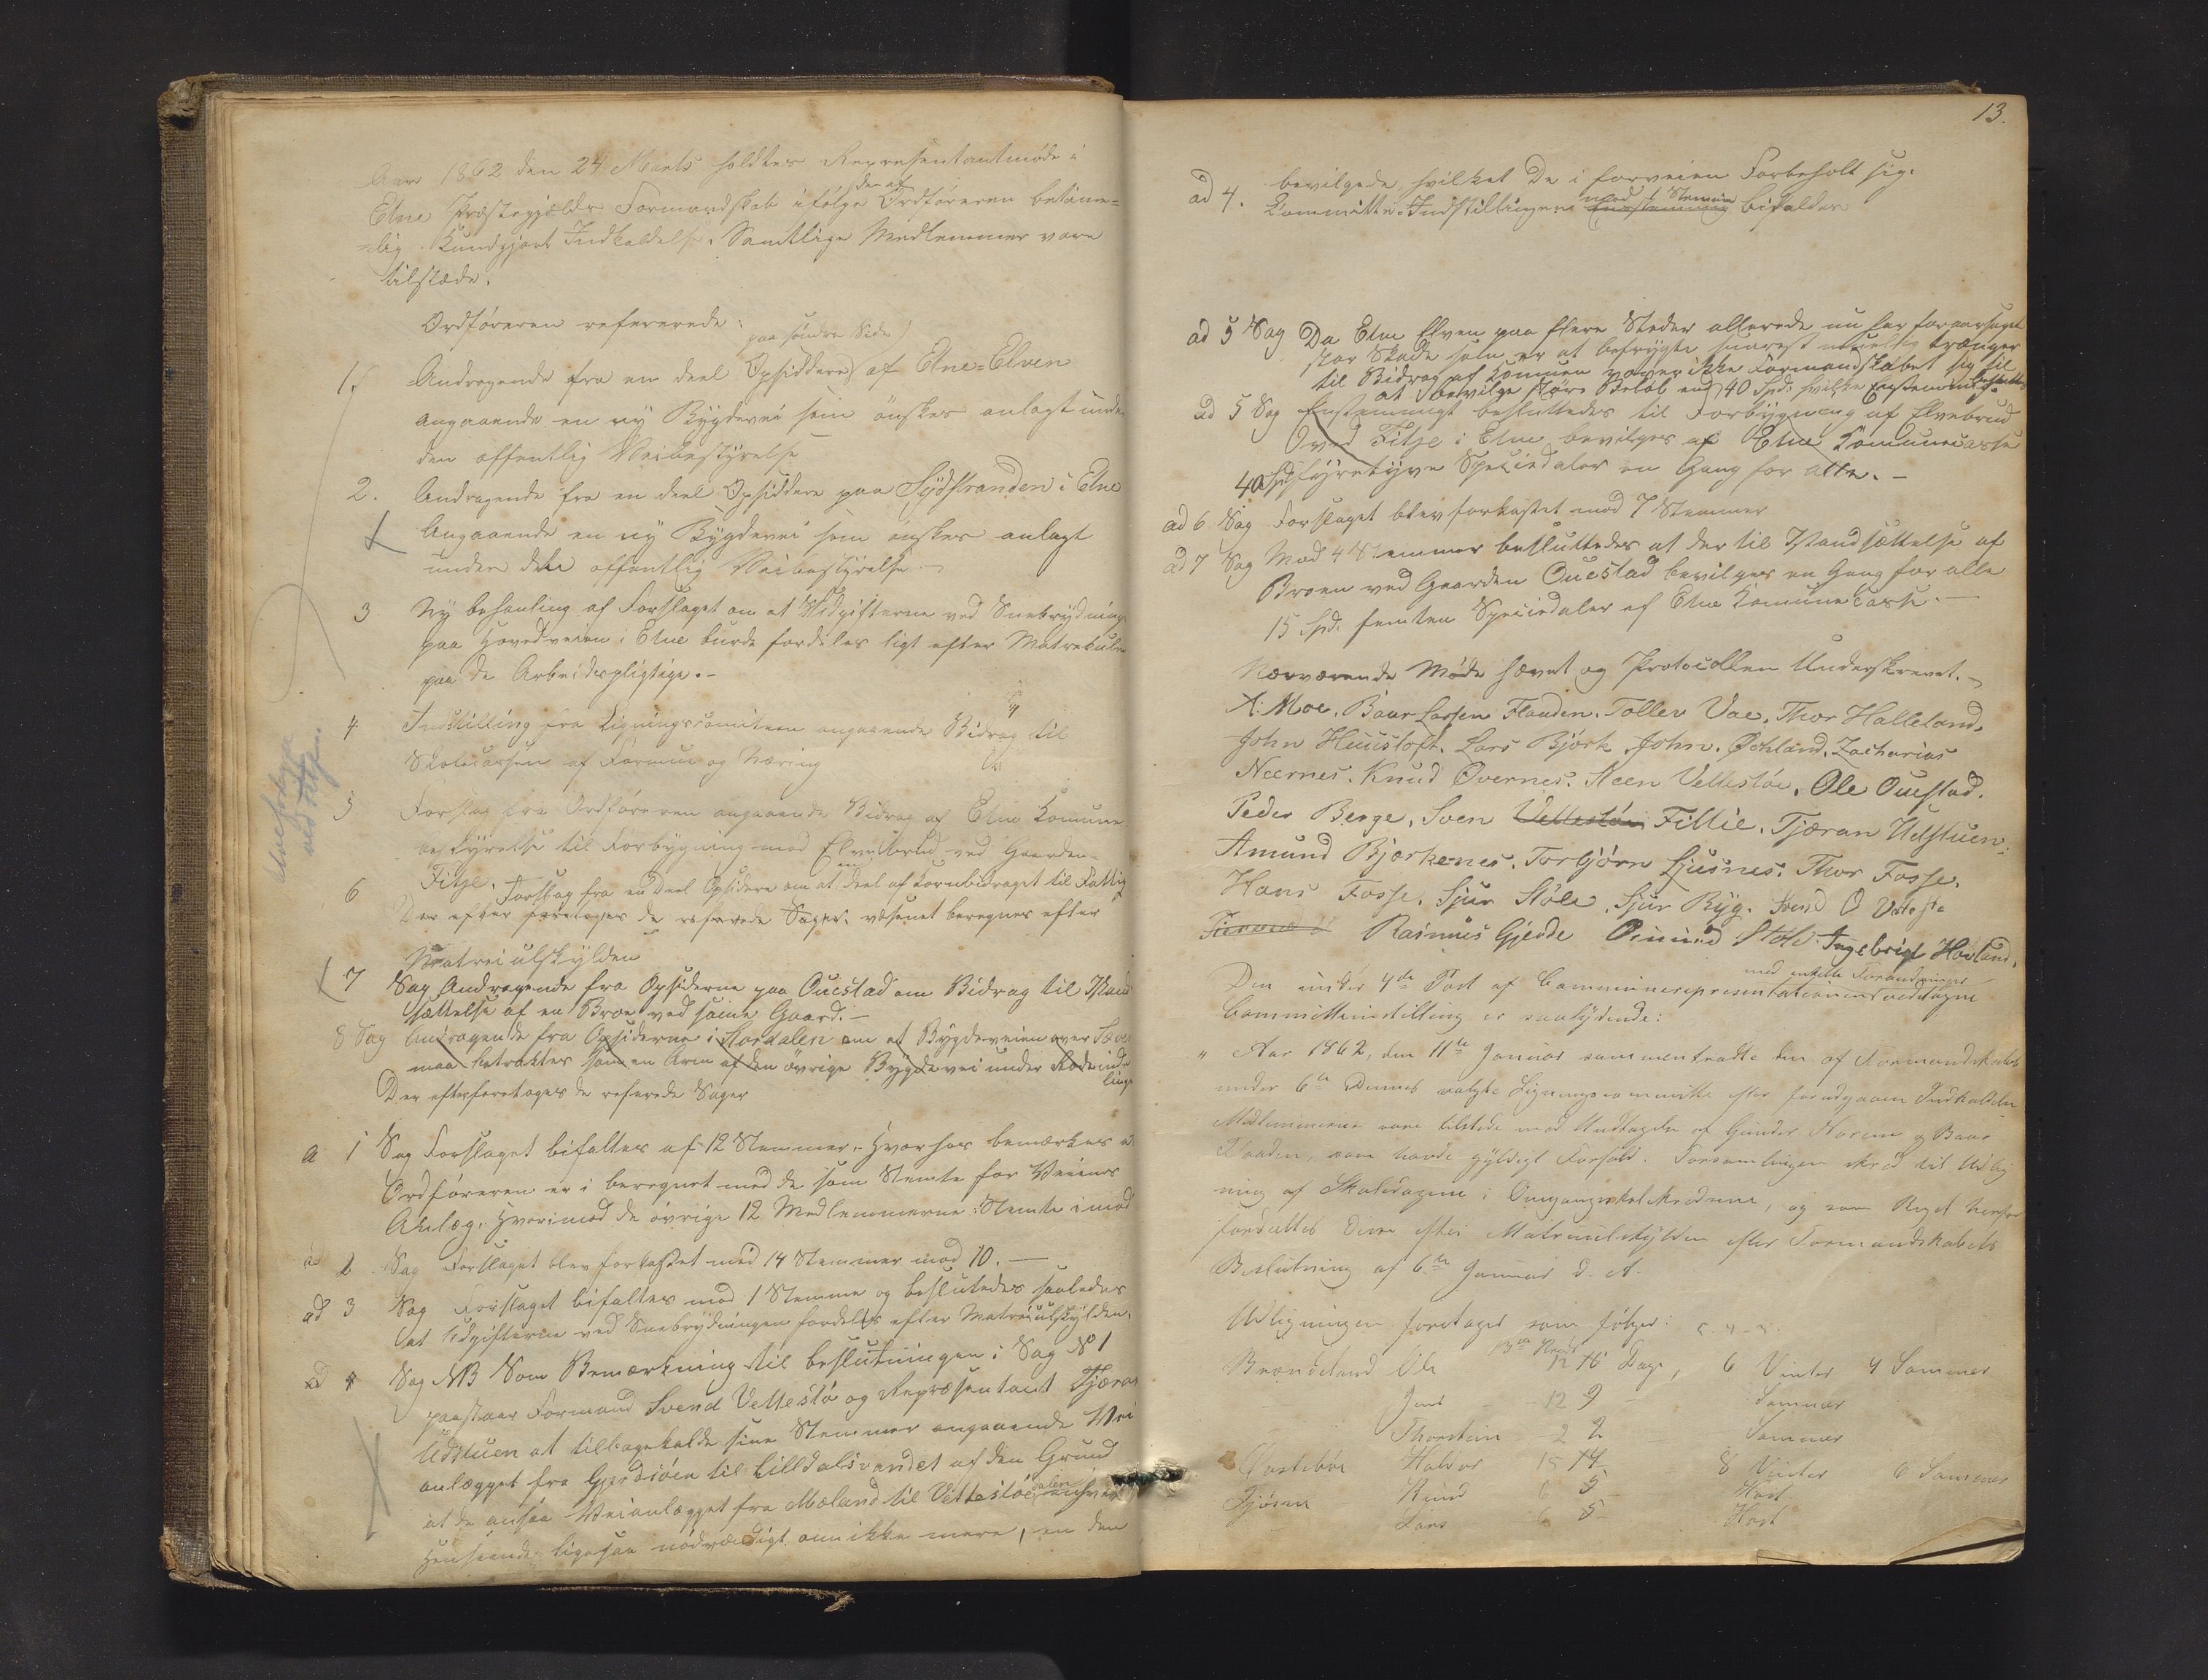 Aar 1862 den 24 Marts holdtes Representantmøde i
Etne Præstegjælds Formandskab ifølge den af Ordføreren betime-
-lig Kundgjort Indkaldelse. Samtlige Medlemmer vare
tilstæde.
Ordføreren refererede:
paa søndre Side
1. Andragende fra en deel Opsiddere af Etne-Elven
angaaende en ny Bygdevei som ønskes anlagt under
den offentlig Veibestyrelse
2. Andragende fra en deel Opsiddere paa Sydstranden i Etne
Angaaende en ny Bygdevei som ønskes anlagt
under den offentlig Veibestyrelse
3 Ny behanling af Forslaget om at Udgifterne ved Snebrydning
paa Hovedveien i Etne burde fordeles ligt efter Matrekulen
paa de Arbeidspligtige.-
4 Indstilling fra Ligningscomiteen angaaende Bidrag til
Skolecassen af Formue og Næring
5 Forslag fra Ordføreren angaaende Bidrag af Etne Komune
bestyrelse til Forbygning mod Elvebrud ved Gaarden
Fitje.
6 Forslag fra en Deel Opsidere om at en Deel af Kornbidraget til Fattig
Der efter foretages de referede Sager. væsenet beregnes efter
Matreculskylden
7 Sag Andragende fra Opsiderne paa Ouestad om Bidrag til Istand
sættelse af en Broe ved samme Gaard.-
8 Sag Andragende fra Opsiderne i Stordalen om at Bygdeveien over
maa betraktes som en Arm af den øvrige Bygdevei under Rodeinde
lings
Der efterforetages de referede Sager
a 1 Sag Forslaget bifaltes af 12 Stemmer. Hvorhos bemærkes at
Ordføreren er i beregnet med de som Stemte for Veiens
Anlæg. Hvorimod de øvrige 12 Medlemmerne Stemte imod
2 Sag Forslaget blev forkastet med 14 Stemmer mod 10. -
ad 3 Sag Forslaget bifaltes mod 1 Stemme og beslutedes saaledes
at Udgifterne ved Snebrydningen fordeles efter Matreculskylden.
ad 4 Sag NB Som Bemærkning til beslutningen i Sag No 1
paastaar Formand Svend Vettestø og Repræsentant Tjæran
Udstuen at tilbagekalde sine Stemmer angaaende Vei
anlægget fra Gjerdsøen til Lilldalsvandet af den Grund
at de ansaa Veianlægget fra Mæland til Vettestø
Henseende ligesaa nødvændigt om ikke mere, en den
Elveforbyg
ved Fitje.
13.
bevilgede hvilket De i forveien Forbeholt sig.
ad 4. Committe-Indstillingen mod 1 Stemme bifaldes
ad 5 Sag Da Etne Elven paa flere Steder allerede nu har foraarsaget
stor Skade som er at befrygte snarest muelig trænger
til Bidrag af Komunen vover ikke Formandskabet sig til
at bevilge større Beløb end 40 Spd. hvilke Enstemmig
ad 5 Sag Enstemmigt besluttedes til Forbygning af Elvebrud
ved Fitje i Etne bevilges af Etne Komunecasse
40 Spd fyretyve Speciedaler en Gang for alle. -
ad 6 Sag Forslaget blev forkastet mod 7 Stemmer
ad 7 Sag Mod 4 Stemmer besluttedes at der til Istandsættelse af
Broen ved Gaarden Ouestad bevilges en Gang for alle
15 Spd. femten Speciedaler af Etne Komunecasse. -
Nærværende Møde hævet og Protocollen Underskrevet. -
A. Moe. Baar Larsen Flaaden. Tollev Vae. Thor Halleland.
John Huusloft. Lars Bjørk. John. Øchland. Zacharias
Neernes. Knud Øvernes. Steen Vettestøe. Ole Ouestad.
Peder Berge. Sven Vettestøe Fittie. Tjæran Udstuen.
Amund Bjørkenes. Torbjørn Ljusnes. Thor Fosse.
Hans Fosse. Sjur Støle. Sjur Ryg. Svend O Vetestø
Rasmus Gjerde Omund Støle Ingebrigt Hovland.
Den under 4de Post af Communerepresentationen med enkelte Forandringer vedtagne
Committeindstilling er saalydende:
" Aar 1862, den 11te Januar sammentraadte den af Formandskabet
under 6te Dennes valgte Ligningscommitte efter forudgaaen Indkaldelse
Medlemmerne vare tilstede med Undtagelse af Gunder Haren og Baar
Flaaden, som havde gyldigt Forfald. Forsamlingen skred til Udlig
ning af Skoledagene i Omgangsskolekredsene, og som Regel herfor
fordeeltes disse efter Matreculskylden efter Formandskabets
Beslutning af 6te Januar d. A.
Udligningen foretages som følger:
Brændeland Ole 12 16 Dage, 6 Vinter 4 Sommer
Jens - 12 9 - Sommer
Thorstein 2 2 Sommer
Østebøe Haldor 15 14 8 Vinter 6 Sommer
Tjøsen Knud 6 5 Høst
Lars 6 5 Høst